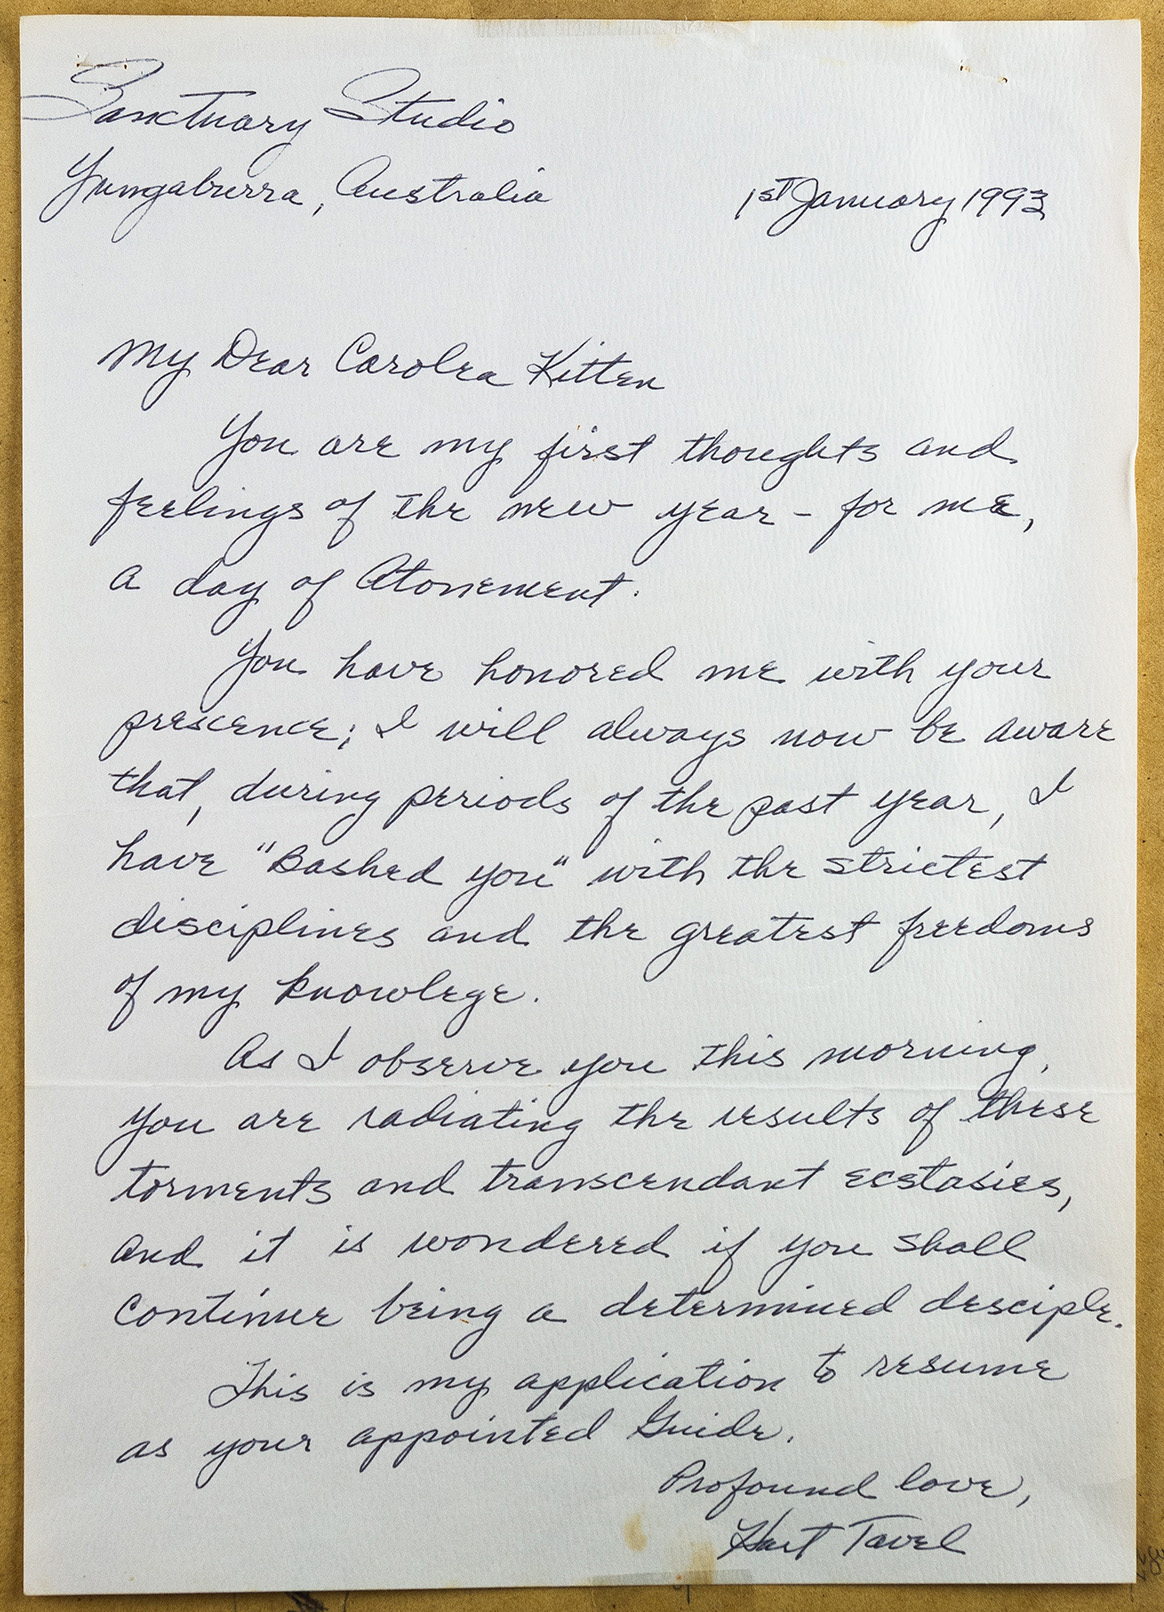 Sanctuary Studio
Yungaburra, Australia
1st January 1993
My Dear Carolea Kitten
You are my first thoughts and
feelings of the new year - for me,
a day of Atonement.
You have honored me with your
prescence; I will always now be aware
that, during periods of the past year, I
have "Bashed you" with the strictest
disciplines and the greatest freedoms
of my knowlege.
As I observe you this morning,
you are radiating the results of these
torments and transcendant ecstasies,
and it is wondered if you shall
continue being a determined desciple.
This is my application to resume
as your appointed Guide.
Profound love,
Hart Tavel